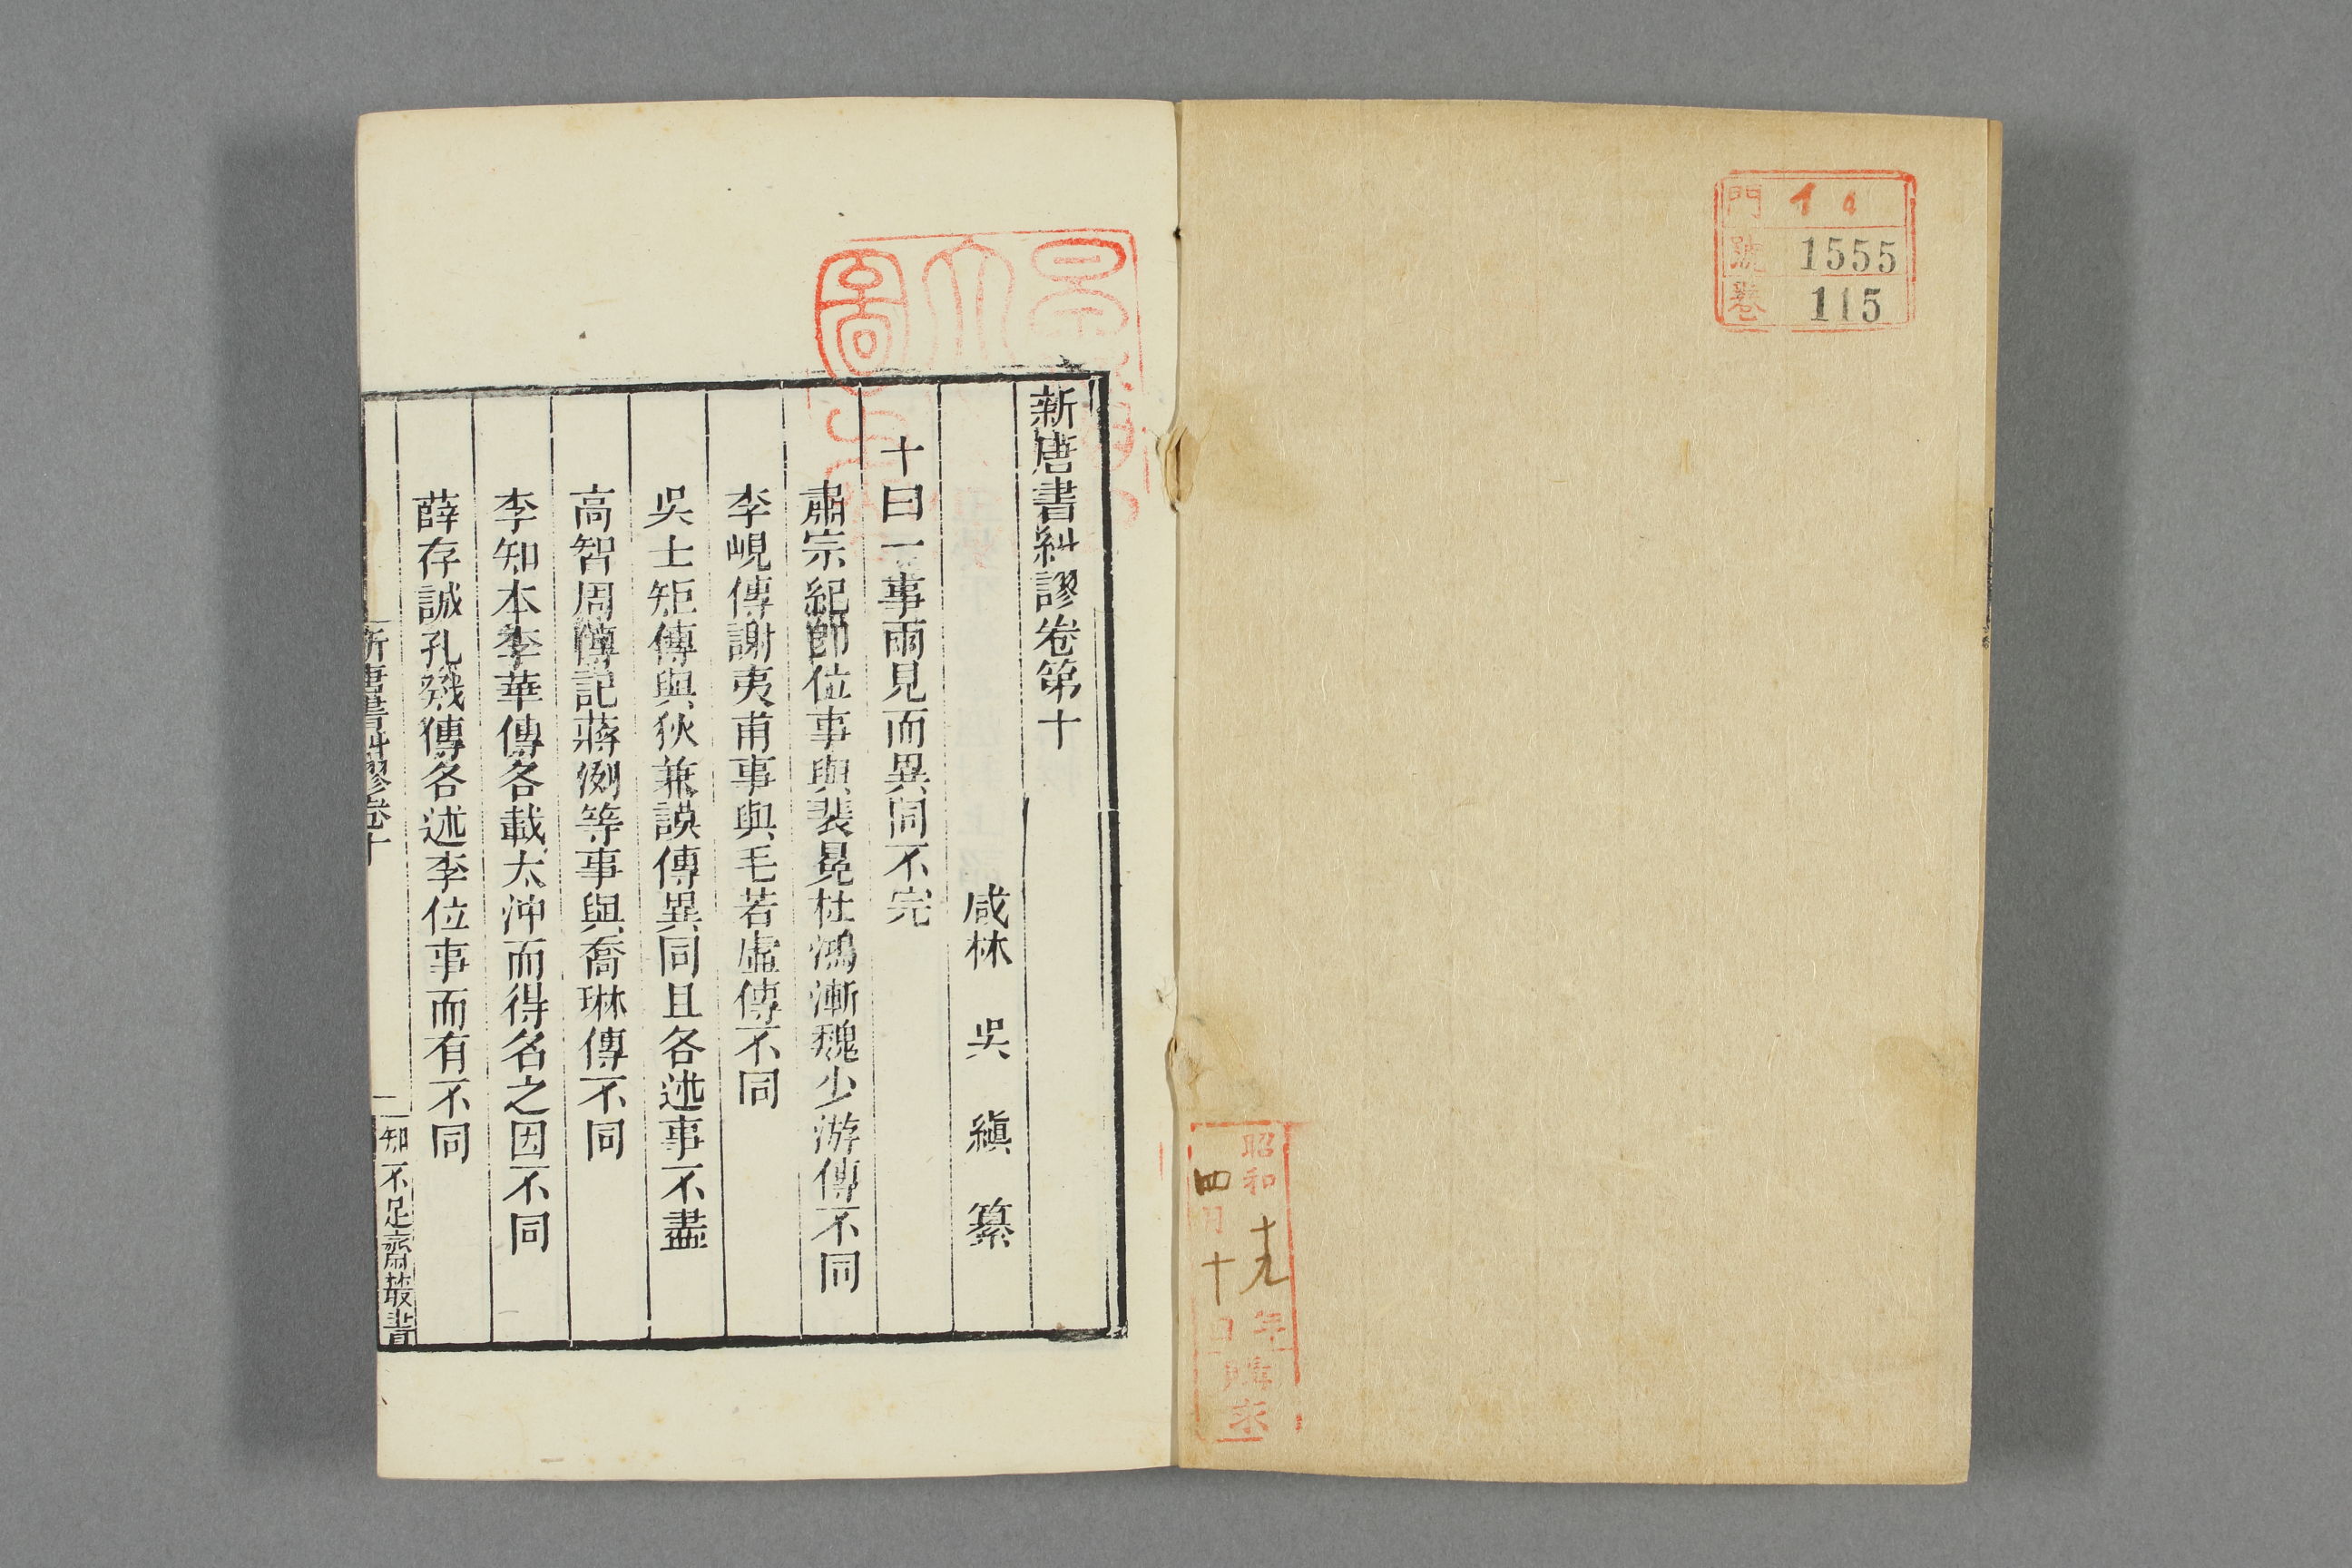 門 イ4
號 1555
卷 115
昭和十九年
四月十日
購求
新唐書糾謬卷第十
咸林 吳 縝 纂
十曰一事兩見而異同不完
肅宗紀卽位事與裴冕杜鴻漸魏少游傳不同
李峴傳謝夷甫事與毛若虛傳不同
吳士矩傳與狄兼謨傳異同且各述事不盡
高智周傳記蔣洌等事與喬琳傳不同
李知本李華傳各載太沖而得名之因不同
薛存誠孔戣傳各述李位事而有不同
新唐書糾謬卷十
一
知不足齋叢書